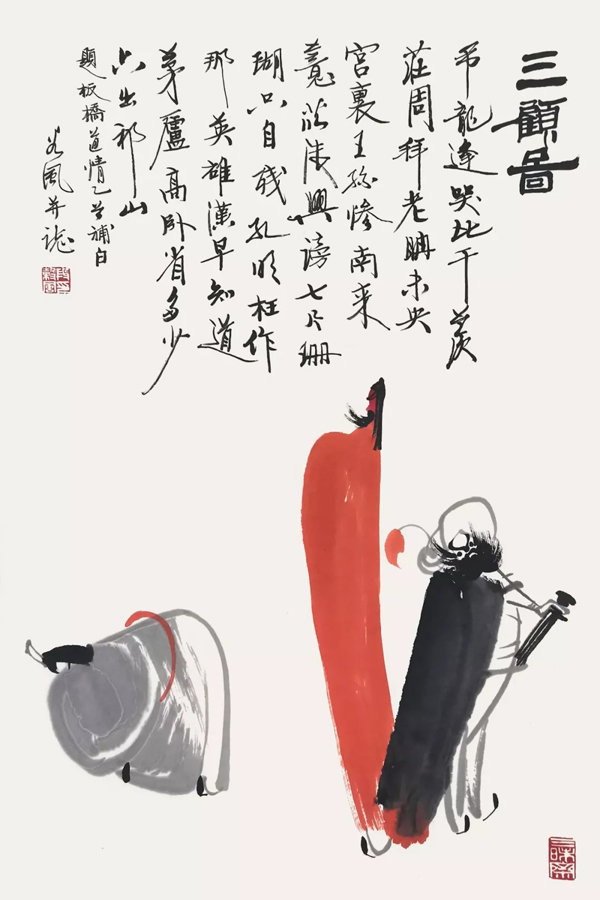 三顧圖
吊龍逢哭比干羨
莊周拜老聃未央
宮裏王孫慘南来
薏苡徒興謗七尺珊
瑚只自殘孔明枉作
那英雄漢早知道
茅廬高卧省多少
六出祁山
題板橋道情乙首補白
谷風并識